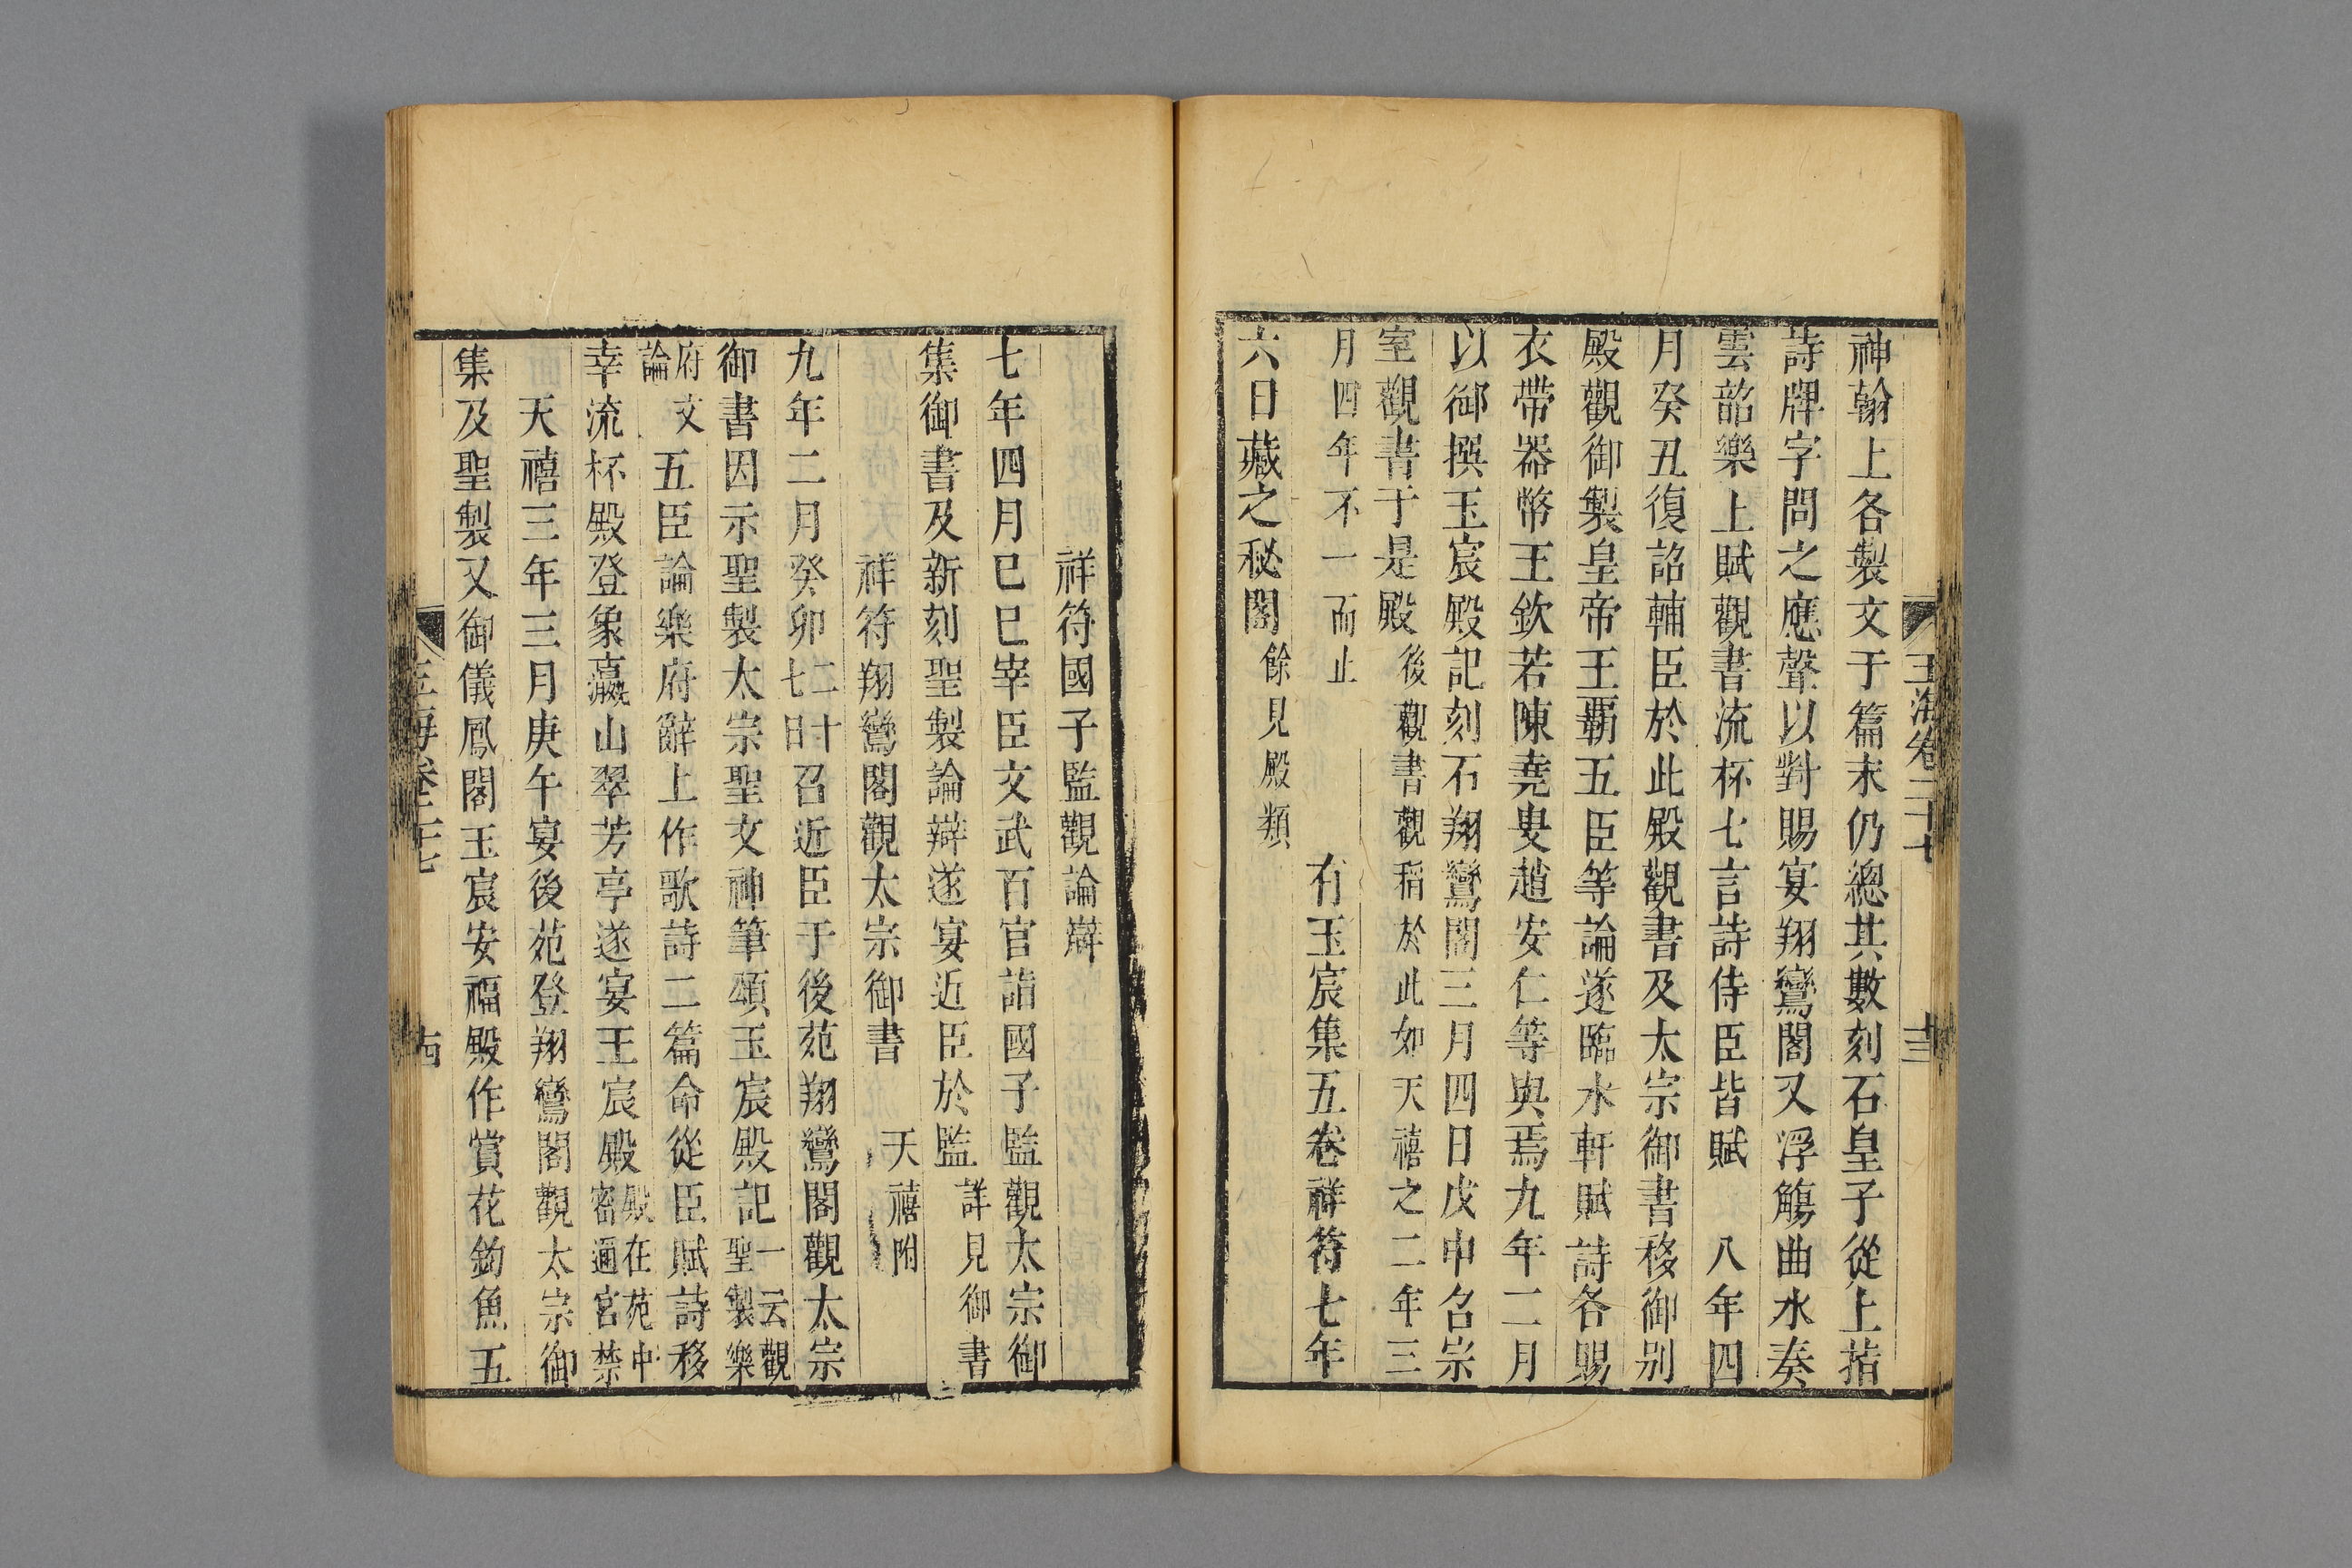 玉海卷二十七
十三
神翰上各製文于篇末仍總其數刻石皇子從上指
詩牌字問之應聲以對賜宴翔鸞閣又浮觴曲水奏
雲韶樂上賦觀書流杯七言詩侍臣皆賦 八年四
月癸丑復詔輔臣於此殿觀書及太宗御書移御別
殿觀御製皇帝王霸五臣等論遂臨水軒賦詩各賜
衣帶器幣王欽若陳堯叟趙安仁等與焉九年二月
以御撰玉宸殿記刻石翔鸞閣三月四日戊申名宗
室觀書于是殿後觀書觀稻於此如天禧之二年三
月四年不一而止
有玉宸集五卷祥符七年
六日藏之秘閣餘見殿類
祥符國子監觀論辯
七年四月巳巳宰臣文武百官詣國子監觀太宗御
集御書及新刻聖製論辯遂宴近臣於監詳見御書
祥符翔鸞閣觀太宗御書 天禧附
九年二月癸卯二十七日召近臣于後苑翔鸞閣觀太宗
御書因示聖製太宗聖文神筆頌玉宸殿記一云觀聖製樂
府文論五臣論樂府辭上作歌詩二篇命從臣賦詩移
幸流杯殿登象瀛山翠芳亭遂宴玉宸殿殿在苑中密邇宮禁
天禧三年三月庚午宴後苑登翔鸞閣觀太宗御
集及聖製又御儀鳳閣玉宸安福殿作賞花釣魚五
玉海卷二十七
十四